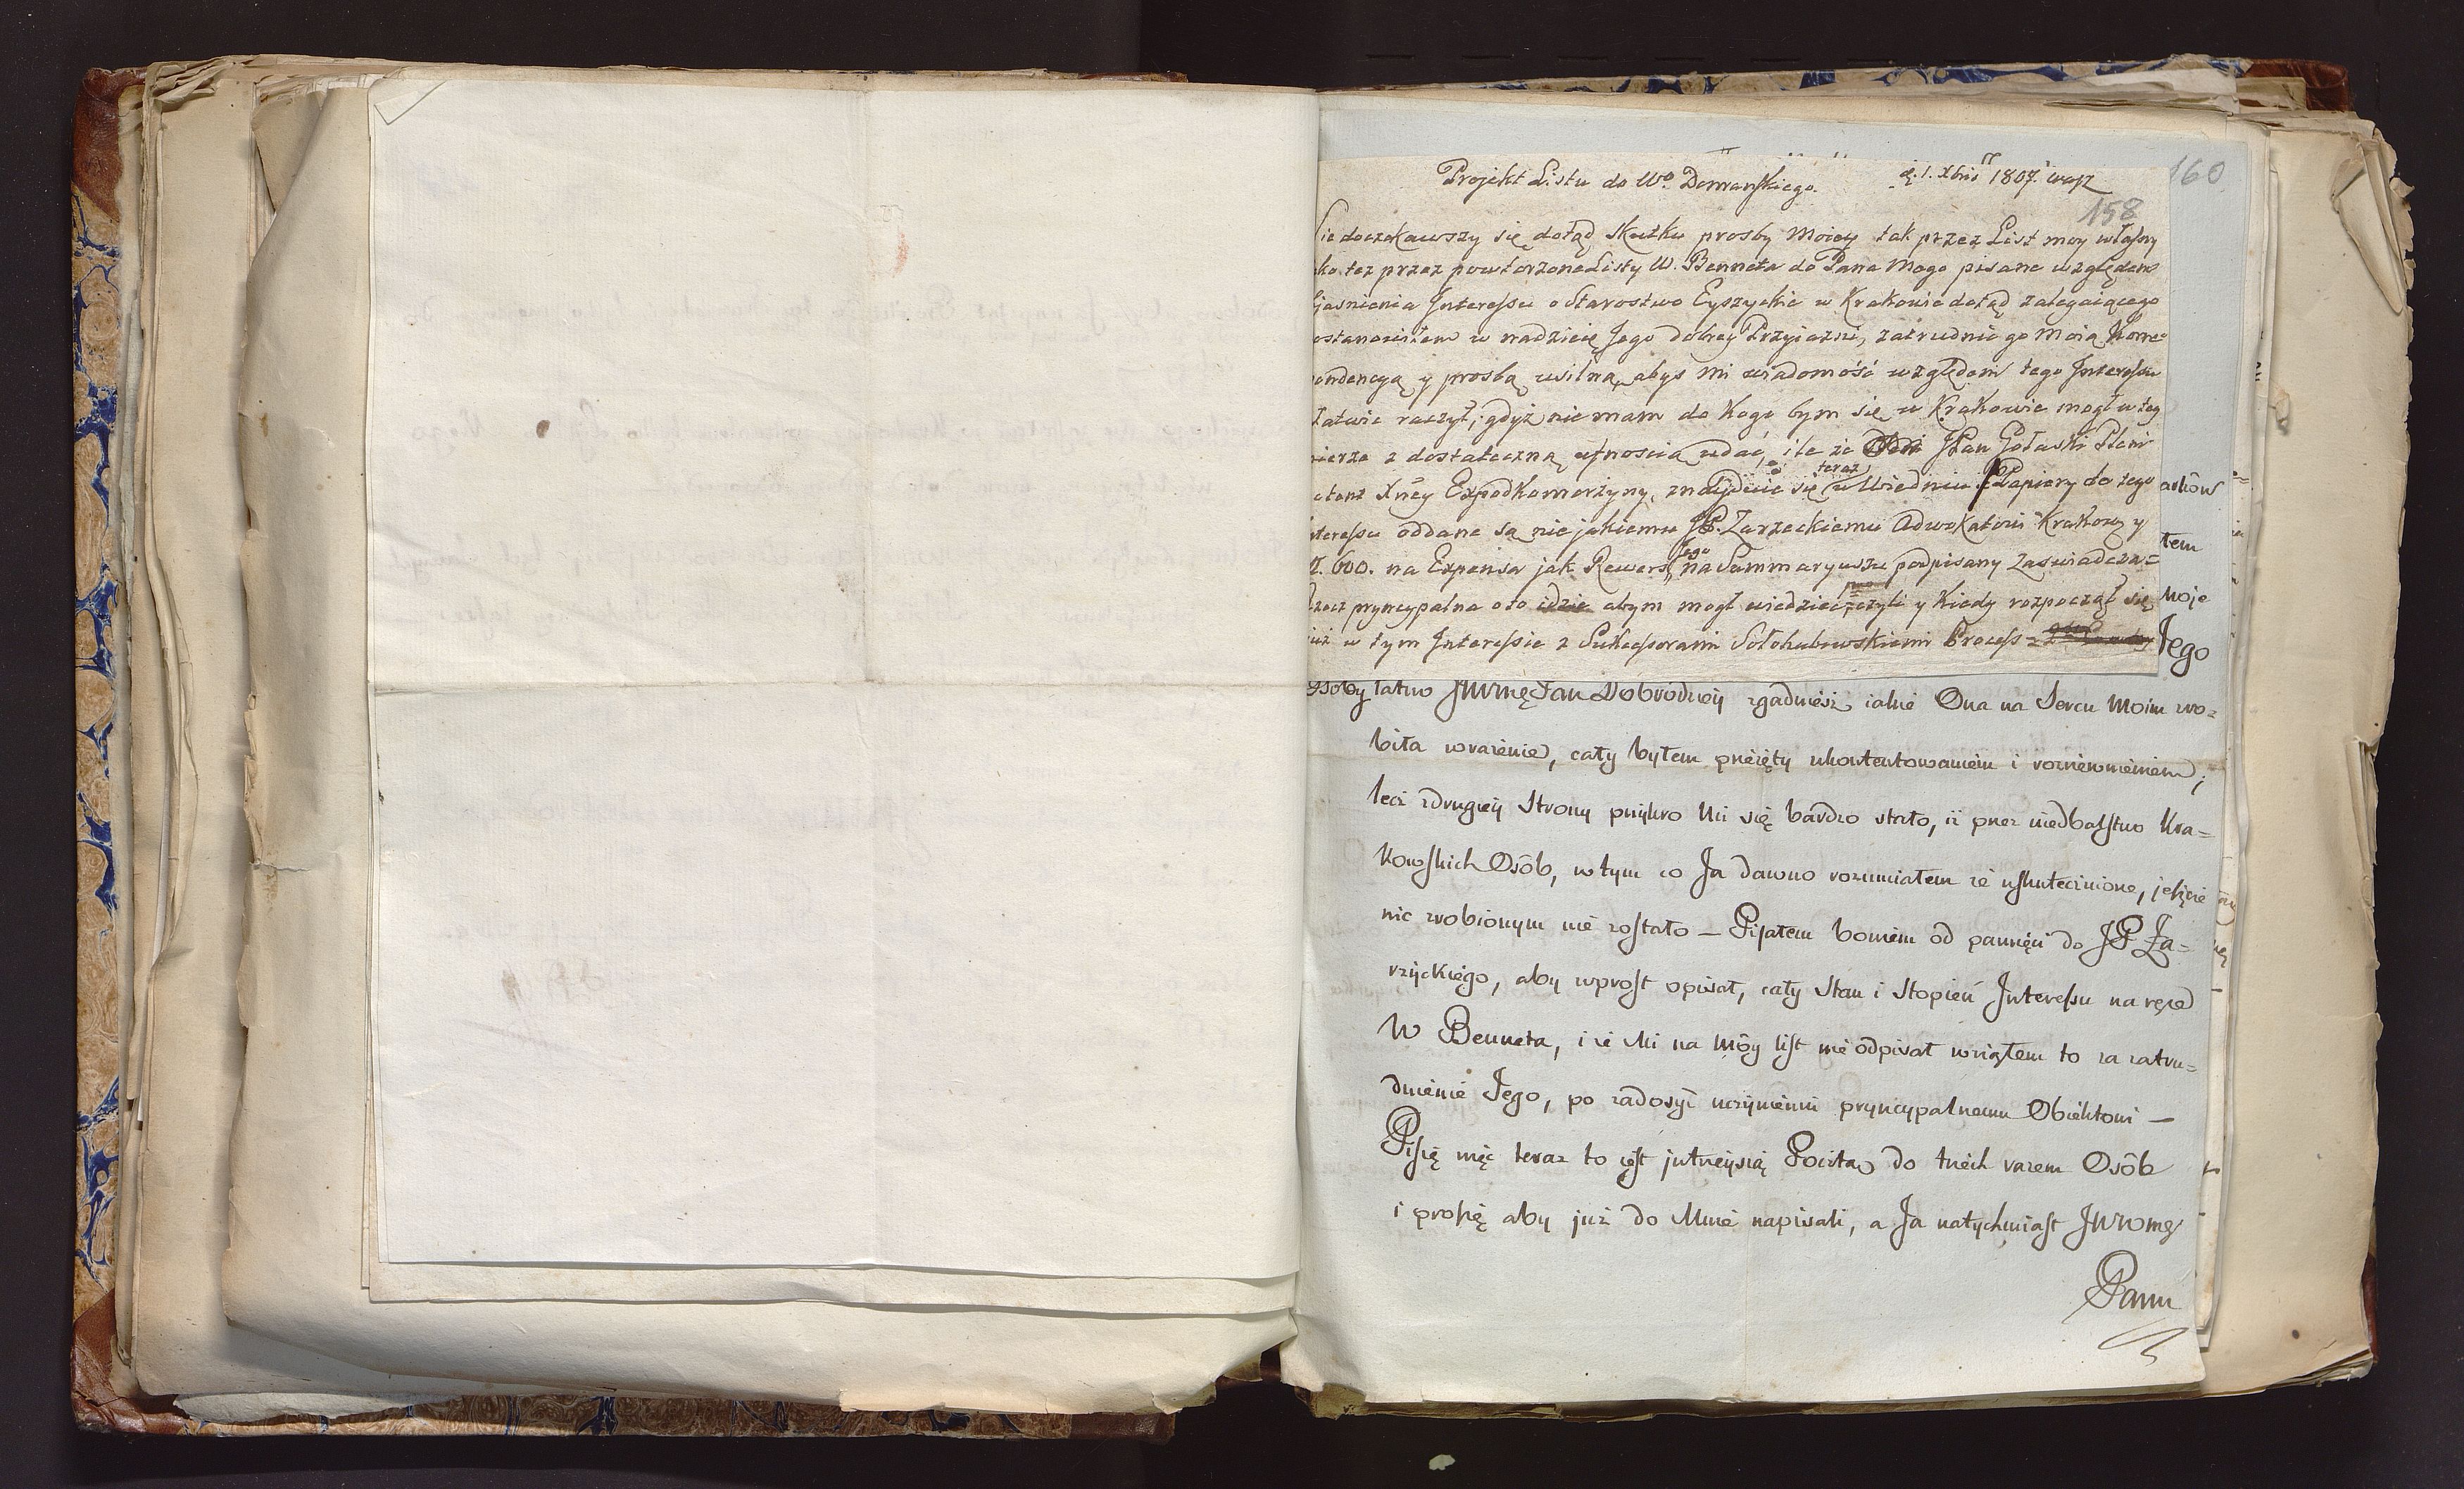 160
Projekt Listu do Wo. Domanskiego. d. 1. Xbris 1807.
158
ie doczekawszy się dotąd skutku prosby Moiey tak przez List moy własny
ko tez przez powtorzone Listy W. Benneta do Pana Mego pisane względem
jasnienia Interessu o Starostwo Eyszyckie w Krakowie dotąd zalegaiącego
ostanowiłem w nadzieię Jego dobrey Przyiazni, zatrudnić go Moią Korre-
ondencyą y prosbą usilną, abys mi wiadomość względem tego Interessu
łatwie raczył; gdyż nie mam do Kogo bym się w Krakowie mogł w tey
mierze z dostateczną ufnoscią udać, ile że JPan Gołaski Pleni
otent Xney Expodkomorżyny, znayduie się teraz w Wiedniu. Papiery do tego
nteressu oddane są nie jakiemu JP. Zarzeckiemu Adwokatowi Krakows: y
zł. 600. na Expensa jak Rewers Jego na Summaryuszu podpisany zaswiadcza=
Rzecz pryncypalna o to idzie abym mogł wiedzieć, czyli y Kiedy rozpoczął się
iuż w tym Interessie z Sukcessorami Sołohubowskiemi Process
arków
tem
Moje
Jego
Osoby łatwo JWWMę Pan Dobrodziey zgadniesz, iakie Ona na Sercu Moim zro=
biła wrażenie, cały byłem przeięty ukontentowaniem i rozrzewnieniem;
lecz z drugiey Strony przykro Mi się bardzo stało, iż przez niedbalstwo Kra=
kowskich Osób, w tym co Ja dawno rozumiałem że uskutecznione, jeszcze
nic zrobionym nie zostało — Pisałem bowiem od pamięci do JP Za=
rzyckiego, aby wprost opisał, cały Stan i Stopień Interessu na ręce
W Benneta, i że Mi na móy list nie odpisał wziąłem to za zatru=
dnienie Jego, po zadosyć uczynieniu pryncypalnemu Obiektowi —
Piszę więc teraz to iest jutrzeyszą Pocztą do trzech razem Osób
i proszę aby już do Mnie napisali, a Ja natychmiast JWWMę
Panu